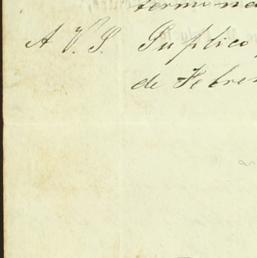 termina
A V. S. Suplico
de Febrer